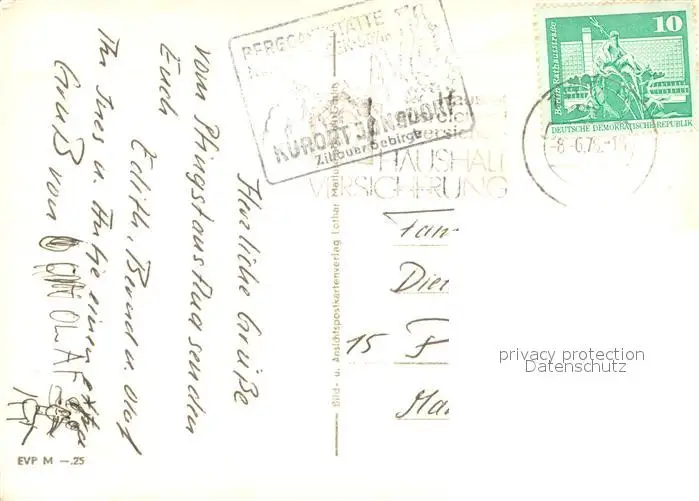 Herzliche Grüße
vom Pfingstausflug senden
Euch
Edith, Bernd u. Olaf
Ihr Ines u. Antje einen extra
Gruß von
OLAF
BERGGASTSTÄTTE
KURORT JONSDORF
Zittauer Gebirge
HAUSHALT
VERSICHERUNG
Berlin, Rathausstraße
10
DEUTSCHE DEMOKRATISCHE REPUBLIK
-8.-6.76.-
Bild- u. Ansichtspostkartenverlag Lothar
Fam
Die
15
Ma
privacy protection
Datenschutz
EVP M -.25